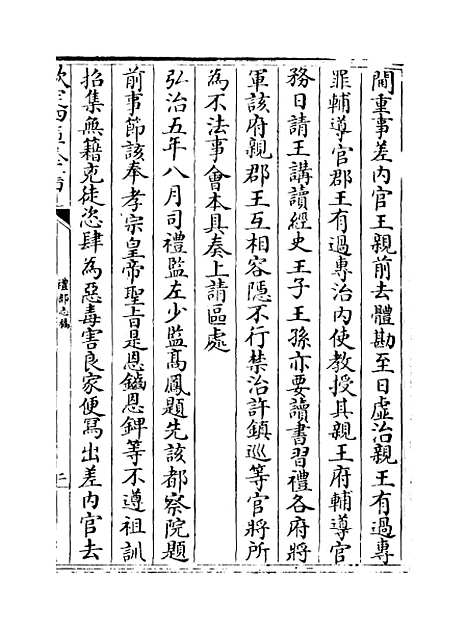 閒重事差內官王親前去體勘至日虛治親王有過專
罪輔導官郡王有過專治內使教授其親王府輔導官
務日請王講讀經史王子王孫亦要讀書習禮各府將
軍該府親郡王互相容隱不行禁治許鎮廵等官將所
為不法事會本具奏上請區處
弘治五年八月司禮監左少監髙鳳題先該都察院題
前事節該奉孝宗皇帝聖㫖是恩鏀恩錍等不遵祖訓
招集無籍兇徒恣肆為惡毒害良家便寫出差內官去
欽定四庫全書
禮部志稿